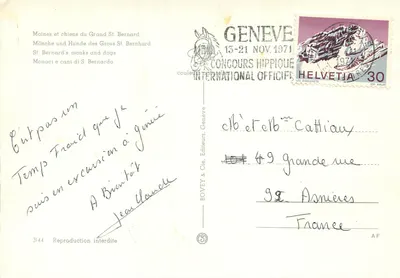 Moines et chiens du Grand St. Bernard
Mönche und Hunde des Gross St. Bernhard
St. Bernard's monks and dogs
Monaci e cani di S. Bernardo
GENEVE
13-21 NOV. 1971
CONCOURS HIPPIQUE
INTERNATIONAL OFFICIEL
HELVETIA 30
C'est pas un
Temps Froid que je
suis en excursion à
A Bientôt
Jean Claude
BOVEY & Cie, Editeurs,
Mr et Mme Cattiaux
49 grande rue
92 Asnières
France
Reproduction interdite